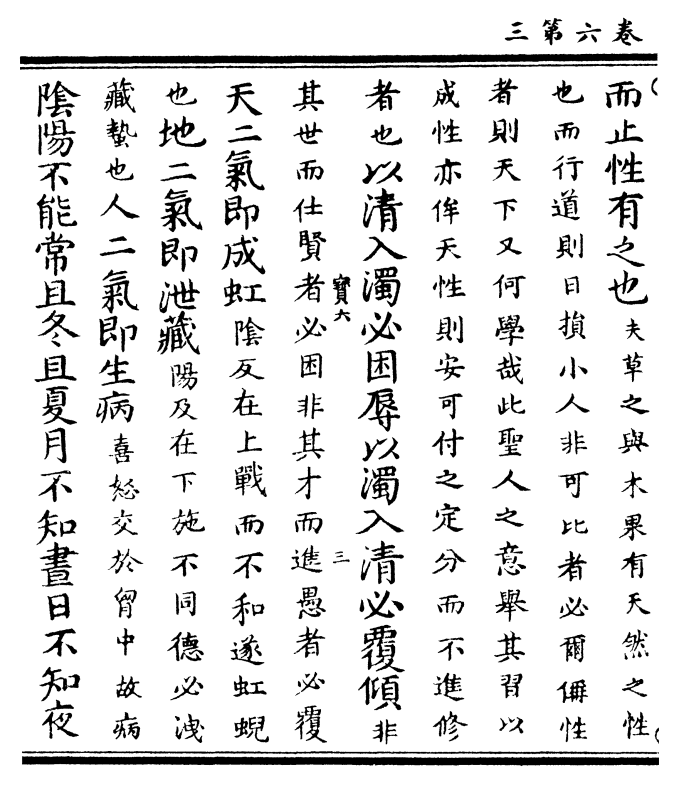 三第六卷
而止性有之也夫草之與木果有天然之性
也而行道則日損小人非可比者必爾俻性
者則天下又何學哉此聖人之意舉其習以
成性亦侔天性則安可付之定分而不進修
者也以清入濁必困辱以濁入清必覆傾非
寶六
三
其世而仕賢者必困非其才而進愚者必覆
天二氣即成虹陰反在上戰而不和遂虹蜺
也地二氣即泄藏陽及在下施不同德必洩
藏蟄也人二氣即生病喜怒交於胷中故病
陰陽不能常且冬且夏月不知晝日不知夜